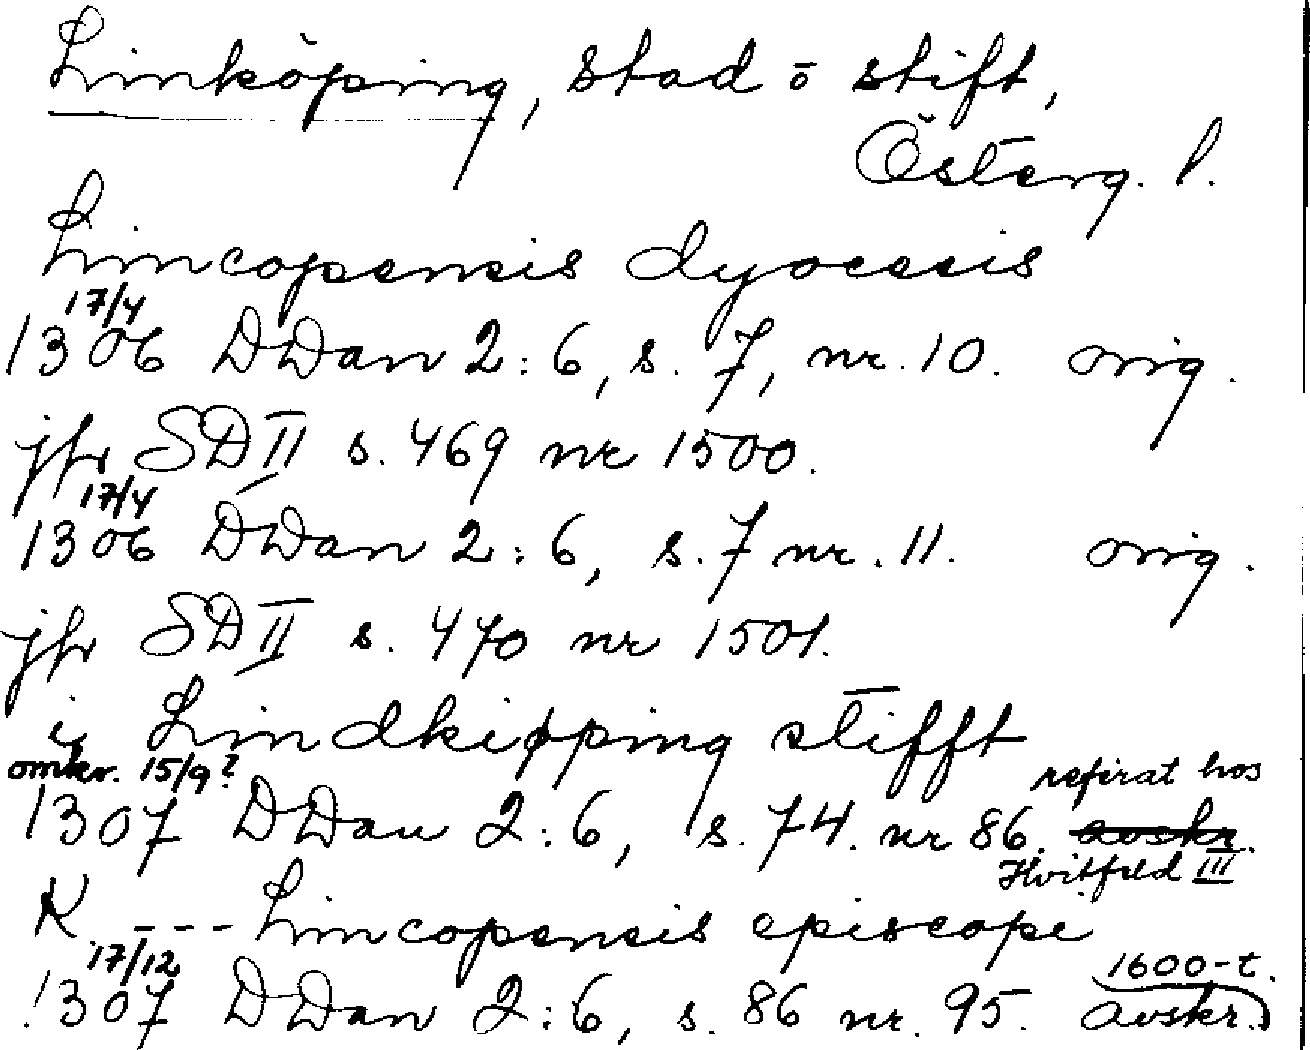 Linköping, stad o stift,
Österg. l.
Lincopensis dyocesis
17/4
1306 DDan 2:6, s. 7, nr. 10. orig.
jfr SD II s. 469 nr 1500.
17/4
1306 DDan 2:6, s. 7 nr. 11. orig.
jfr SD II s. 470 nr 1501.
i Lindkipping stifft
omkr. 15/9? referat hos
1307 DDan 2:6, s. 74. nr 86. avskr.
Hvitfeld III
K ---- Lincopensis episcopi
17/12 1600-t.
1307 DDan 2:6, s. 86 nr. 95. avskr.